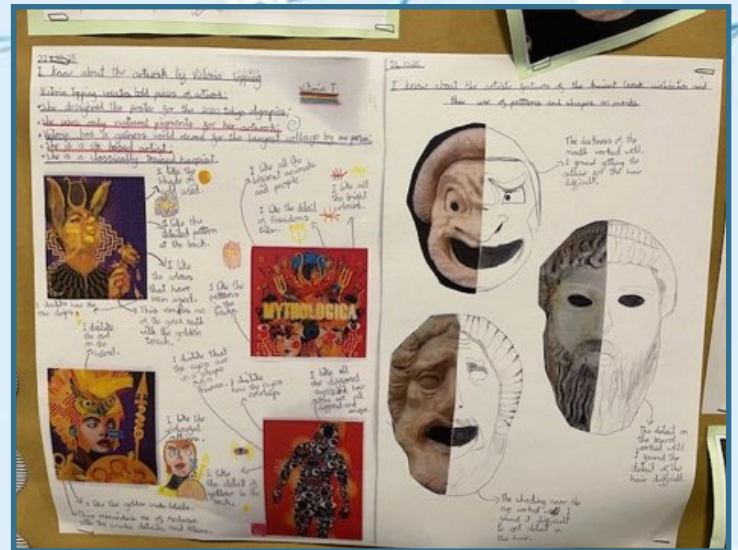 I know about the artwork by Victoria Topping
Victoria T
Victoria Topping creates bold pieces of artwork.
She designed the poster for the 2020 tokyo olympics.
She uses only natural pigments for her artwork.
Victoria has a guiness world record for the largest collage by one person.
She is a UK based artist.
She is a classically trained harpist.
I like the
shade of
gold used.
I like the
detailed pattern
at the back.
I like
the colours
that have
been used.
This reminds me
of the greek myth
with the golden
touch.
I dislike how the
I dislike
the owl
on the
I like all the
different animals
and people
I like the detail
I like all
the bright
colours.
I like the
patterns
in the
MYTHOLOGICA
I dislike that
the eyes are
in a shape
I dislike
how the eyes
overlaps
I like all
the different
I like the
I like
the detail
of yellow in the
back.
I like the golden snake details.
This reminds me of Medusa
with the snake details and
I know about the artistic features of the Ancient Greek civilisation and
their use of patterns and shapes on masks
The darkness of the
mouth worked well.
I found getting the
of the hair
difficult.
The detail on
the beard
worked well.
I found the
detail of the
hair difficult.
The shading near the
eye worked well. I
found it difficult
to get detail in
the hair.